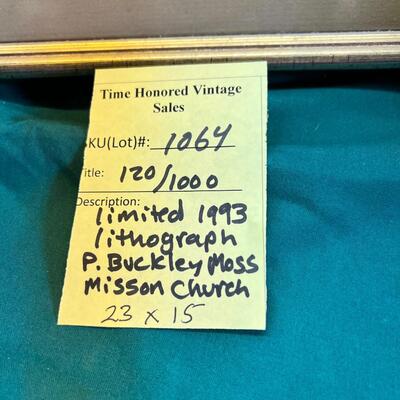 Time Honored Vintage
Sales
KU(Lot)#: 1064
itle: 120/1000
Description:
limited 1993
lithograph
P. Buckley Moss
Misson Church
23 x 15